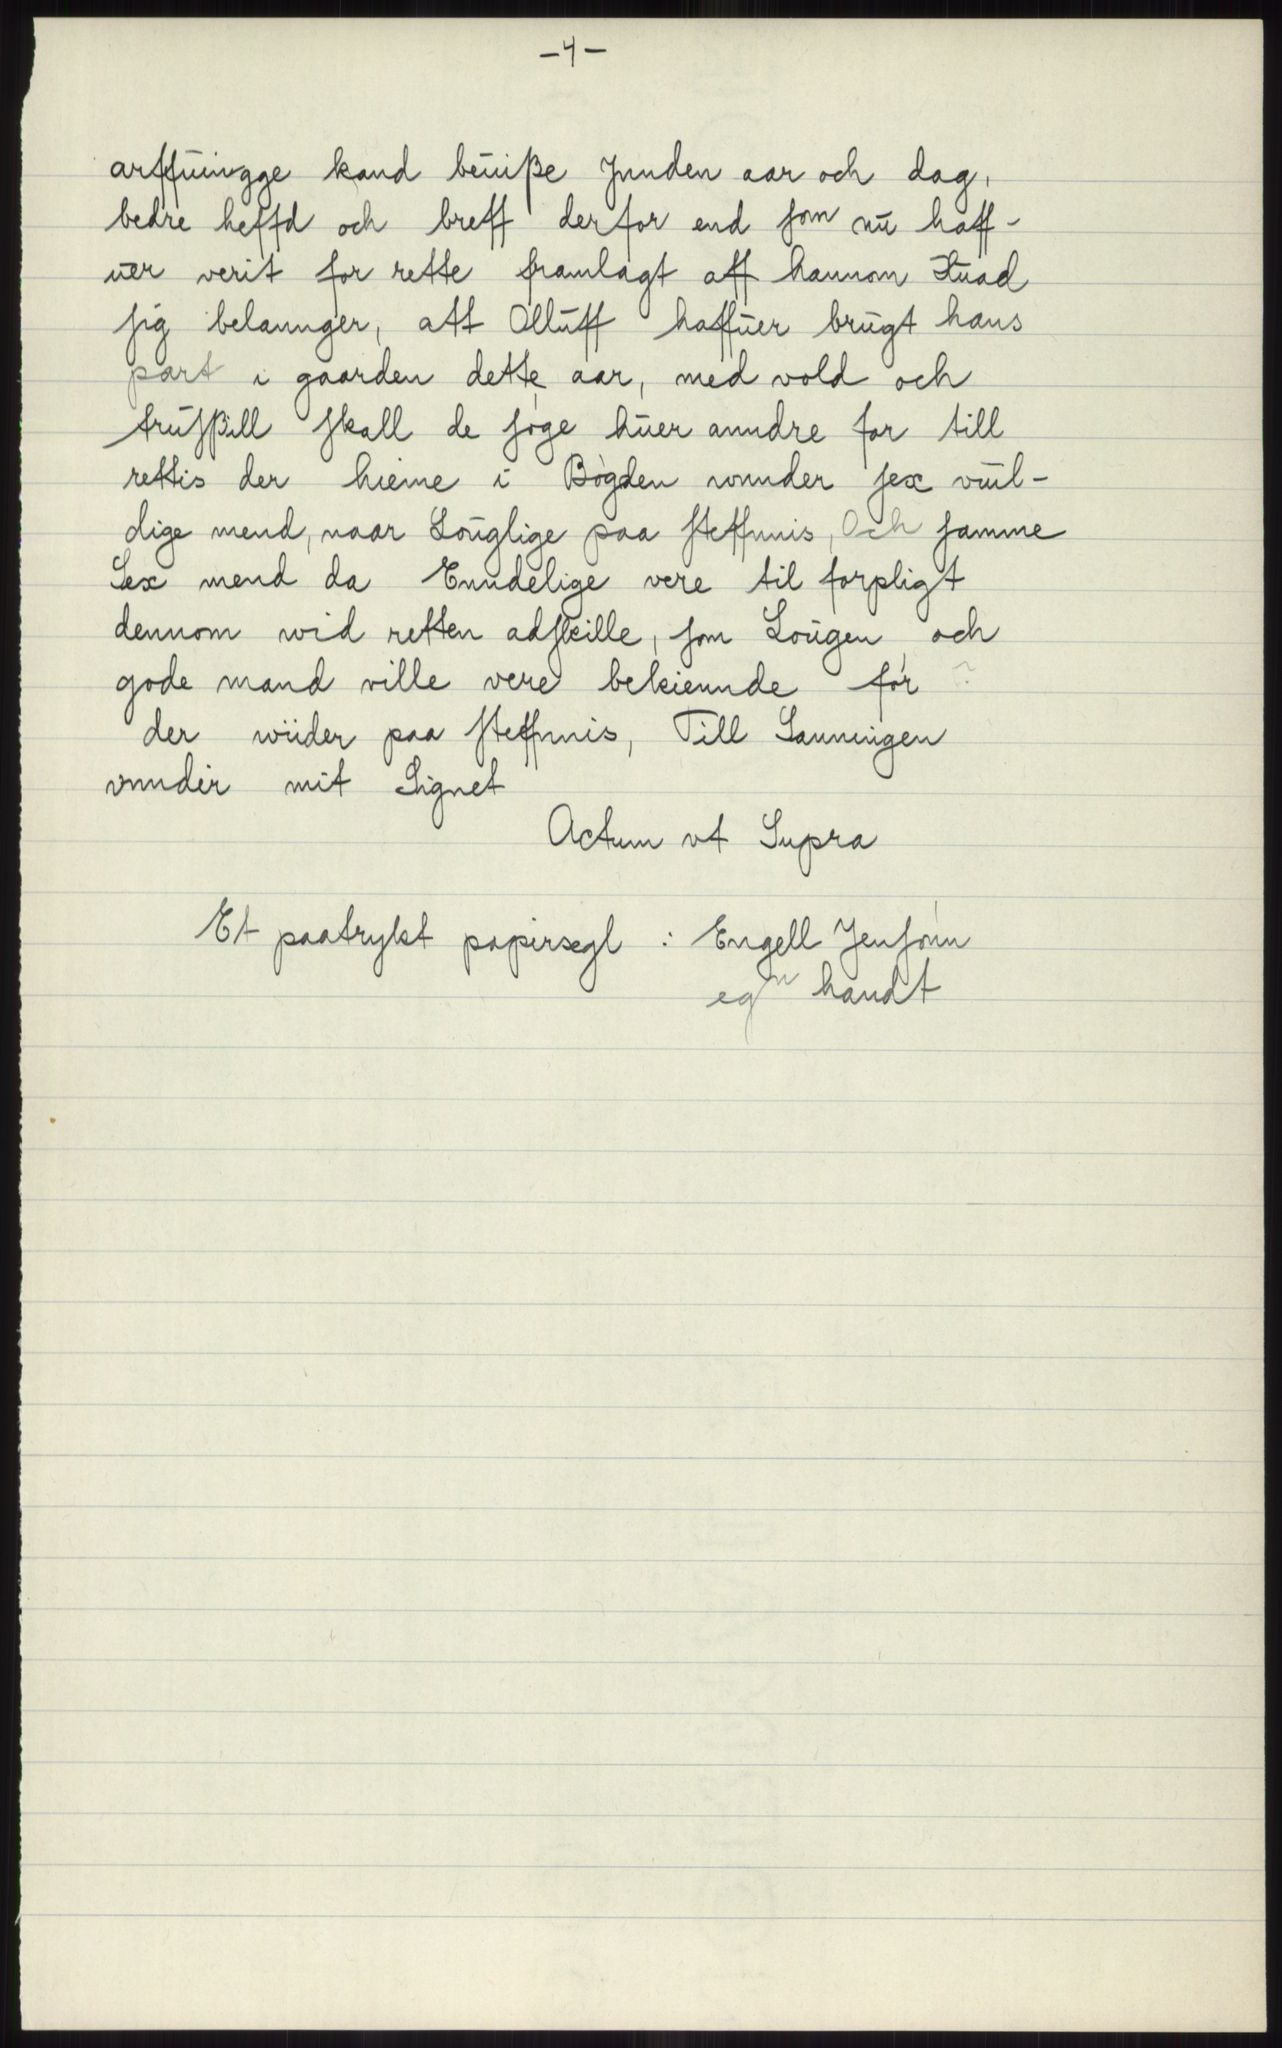 -4-
arffuingge kand beuiße Jnnden aar och dag,
bedre heffd och breff derfor end som nu haff-
uer verit for rette framlagt aff hannom Huad
sig belannger, att Olluff haffuer brugt hans
part i gaarden dette aar, med vold och
trußßill skall de søge huer anndre for till
rettis der hieme i Bøgden vnnder sex vuil-
dige mend, naar Louglige paa steffnnis, Och samme
Sex mend da Enndelige vere til forpligt
dennom wid retten adskille, som Lougen och
gode mand ville vere bekiennde for ?
der wiider paa steffnnis, Till Sanningen
vnndir mit Signet
Actum vt Supra
Et paatrykt papirsegl : Engell Jensønn
egn handt